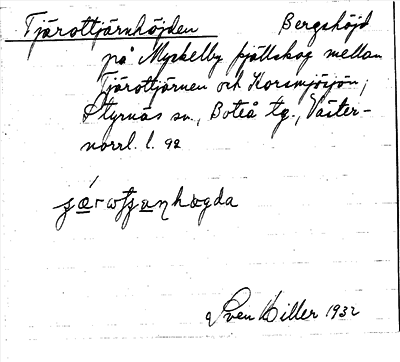 Tjärottjärnhöjden Bergshöjd
på Myckelby fjällskog mellan
Tjärottjärnen och Korsmjösjön,
Styrnäs sn., Boteå tg., Väster-
norrl. l. 92
Sven Hiller 1932